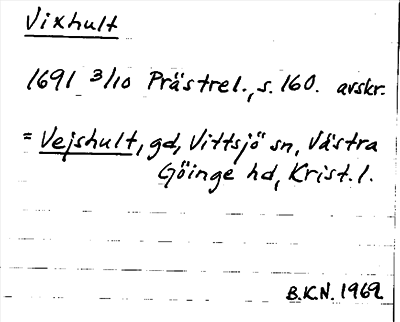 Vixhult
1691 3/10 Prästrel., s. 160. avskr.
= Vejshult, gd, Vittsjö sn, Västra
Göinge hd, Krist. l.
B.K.N. 1969